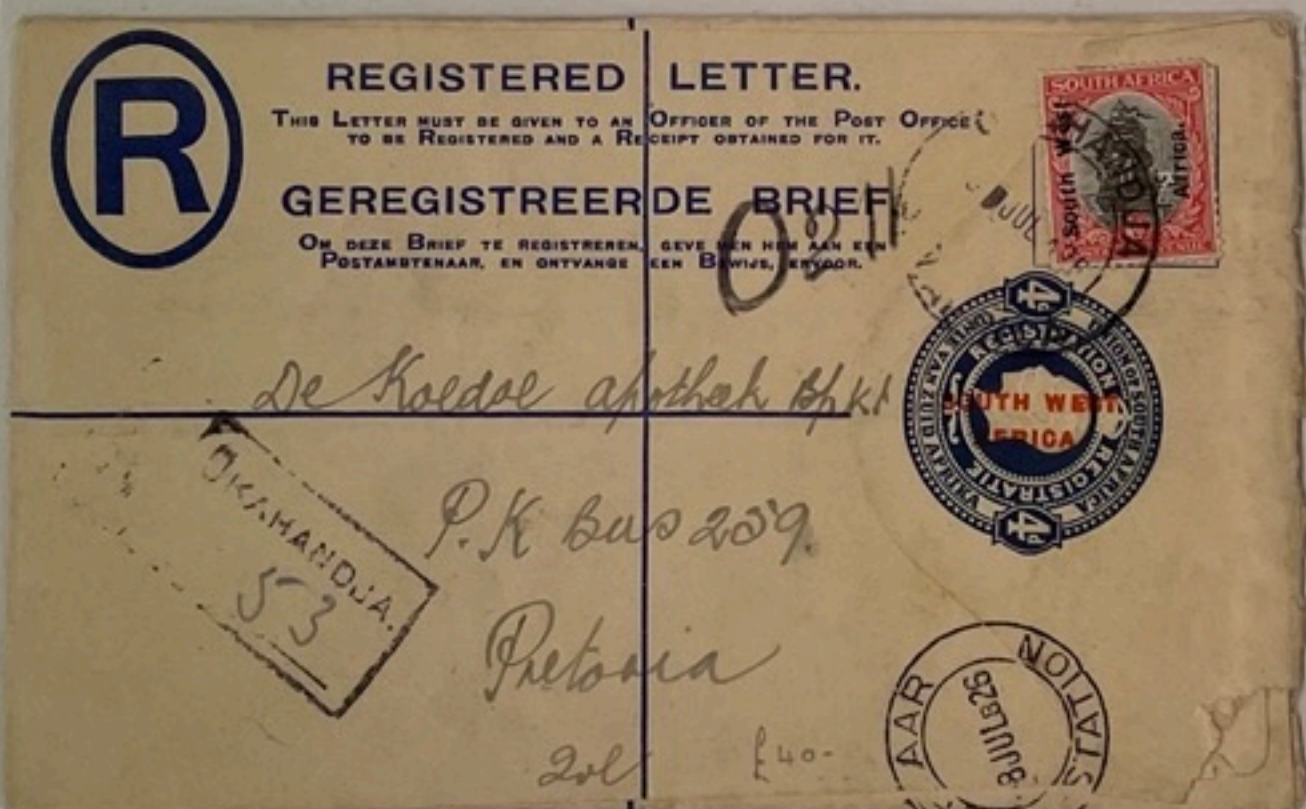 R
REGISTERED LETTER.
THIS LETTER MUST BE GIVEN TO AN OFFICER OF THE POST OFFICE
TO BE REGISTERED AND A RECEIPT OBTAINED FOR IT.
GEREGISTREERDE BRIEF
OM DEZE BRIEF TE REGISTREREN, GEVE MEN HEM AAN EEN
POSTAMBTENAAR, EN ONTVANGE EEN BEWIJS, ERVOOR.
SOUTH AFRICA
South West
Africa.
JUL
4d
UNIE VAN ZUID AFRIKA
UNION OF SOUTH AFRICA
REGISTRATION
SOUTH WEST
AFRICA
REGISTRATIE
4d
De Koedoe Apotheek Bpkt
P.K Bus 259.
Pretoria
£40-
OKAHANDJA.
53
AAR
STATION
8 JUL 26